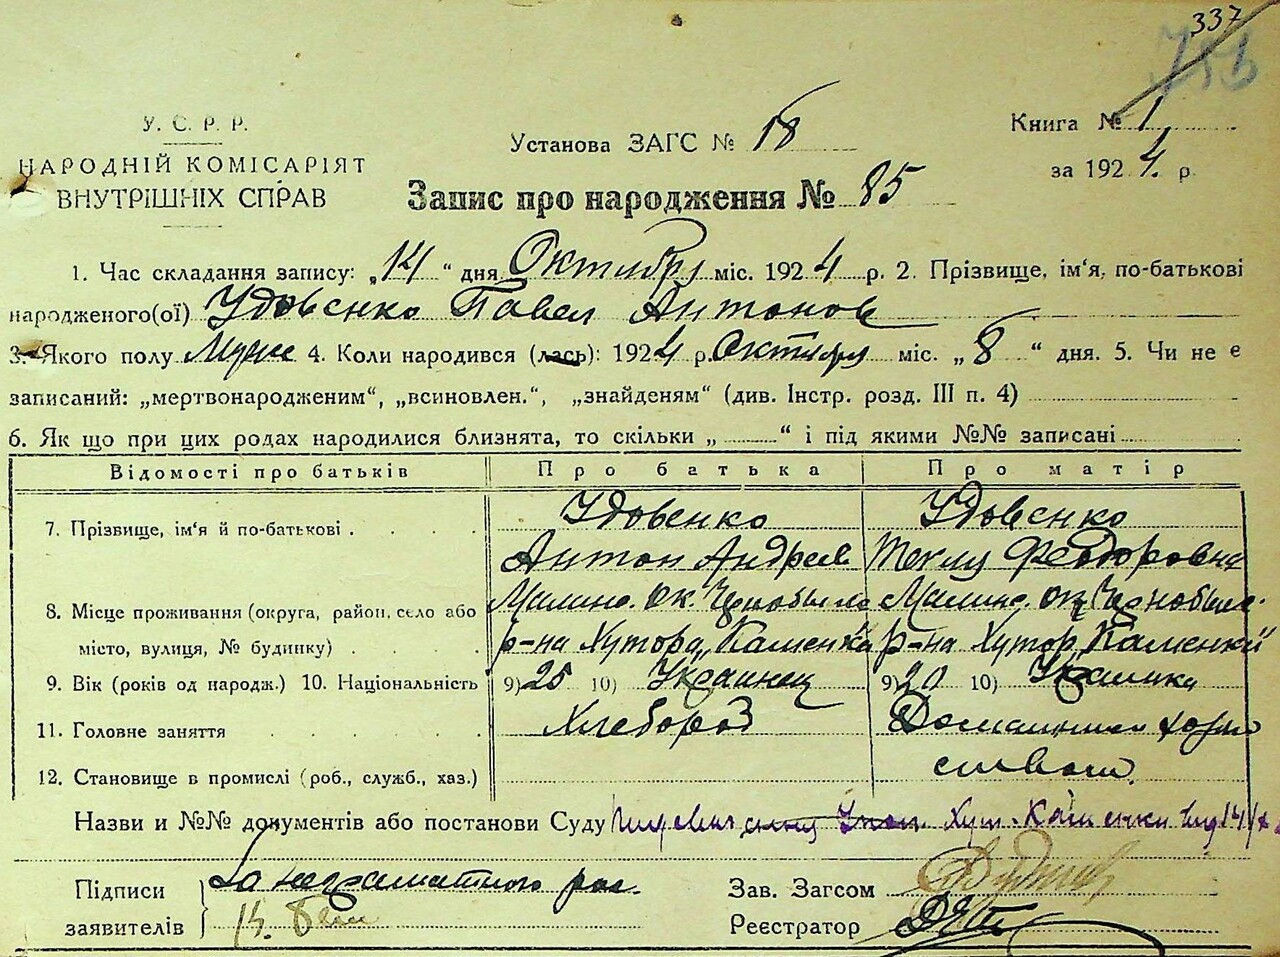 337
У. С. Р. Р.
НАРОДНІЙ КОМІСАРІЯТ
ВНУТРІШНІХ СПРАВ
Установа ЗАГС № 18
Книга № 1
за 1924 р.
Запис про народження № 85
1. Час складання запису: „14“ дня Октября міс. 1924 р. 2. Прізвище, ім'я, по-батькові
народженого(ої) Удовенко Павел Антонов
3. Якого полу Муж 4. Коли народився (лась): 1924 р. Октября міс. „8“ дня. 5. Чи не є
записаний: „мертвонародженим“, „всиновлен.“, „знайденям“ (див. Інстр. розд. III п. 4)
6. Як що при цих родах народилися близнята, то скільки „ “ і під якими №№ записані
Відомості про батьків Про батька Про матір
7. Прізвище, ім'я й по-батькові Удовенко Удовенко
Антон Андреев Теклу Феодоровна
8. Місце проживання (округа, район, село або Малинс. ок. Чернобыл Малинс. ок. Чернобыл.
місто, вулиця, № будинку) р-на Хутора „Каменка р-на Хутор „Каменки"
9. Вік (років од народж.) 10. Національність 9) 25 10) Украинец 9) 20 10) Украинка
11. Головне заняття Хлебороб Домашним хозяй
12. Становище в промислі (роб., служб., хаз.) ством.
Назви и №№ документів або постанови Суду Хут. Каменки
Підписи За неграмотного рос.
заявителів
Зав. Загсом
Реєстратор